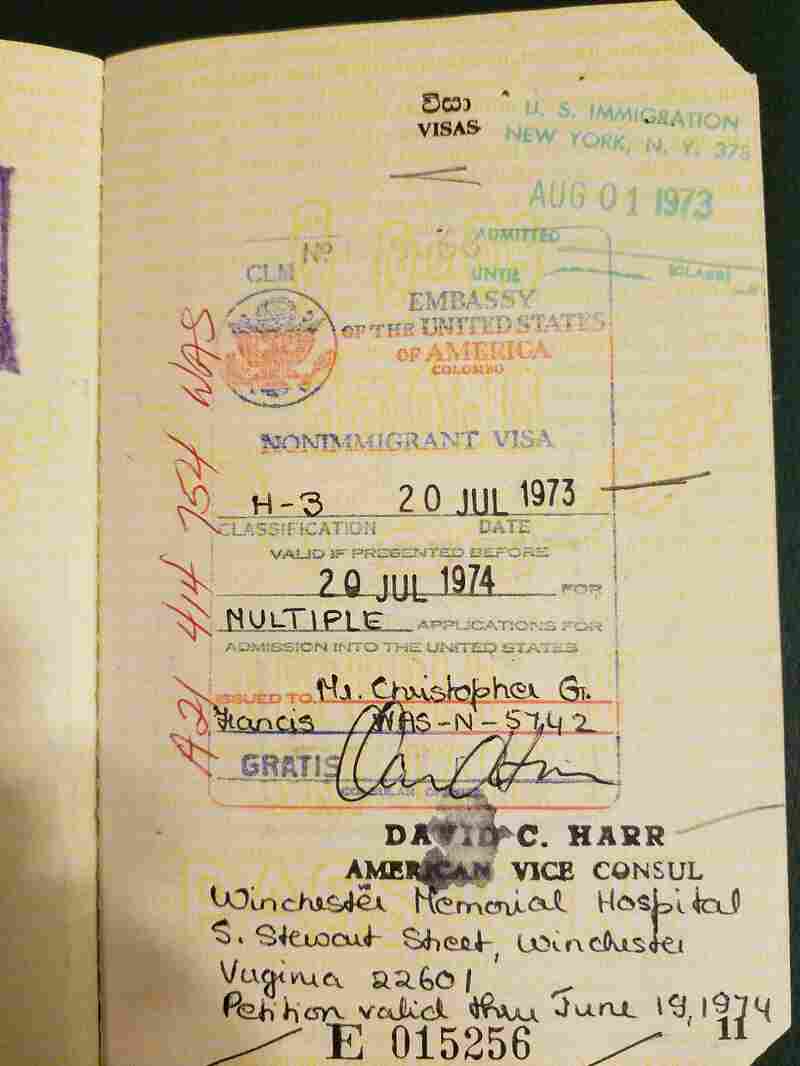 වීසා
VISAS
U. S. IMMIGRATION
NEW YORK, N. Y. 375
AUG 01 1973
ADMITTED
UNTIL (CLASS)
Nº
CLM
EMBASSY
OF THE UNITED STATES
OF AMERICA
COLOMBO
NONIMMIGRANT VISA
H-3 20 JUL 1973
CLASSIFICATION DATE
VALID IF PRESENTED BEFORE
20 JUL 1974 FOR
MULTIPLE APPLICATIONS FOR
ADMISSION INTO THE UNITED STATES
ISSUED TO Mr. Christopher G.
Francis WAS-N-5742
GRATIS
DAVID C. HARR
AMERICAN VICE CONSUL
Winchester Memorial Hospital
S. Stewart Street, Winchester
Virginia 22601
Petition valid thru June 19, 1974
11
E 015256
A21 414 754 WAS